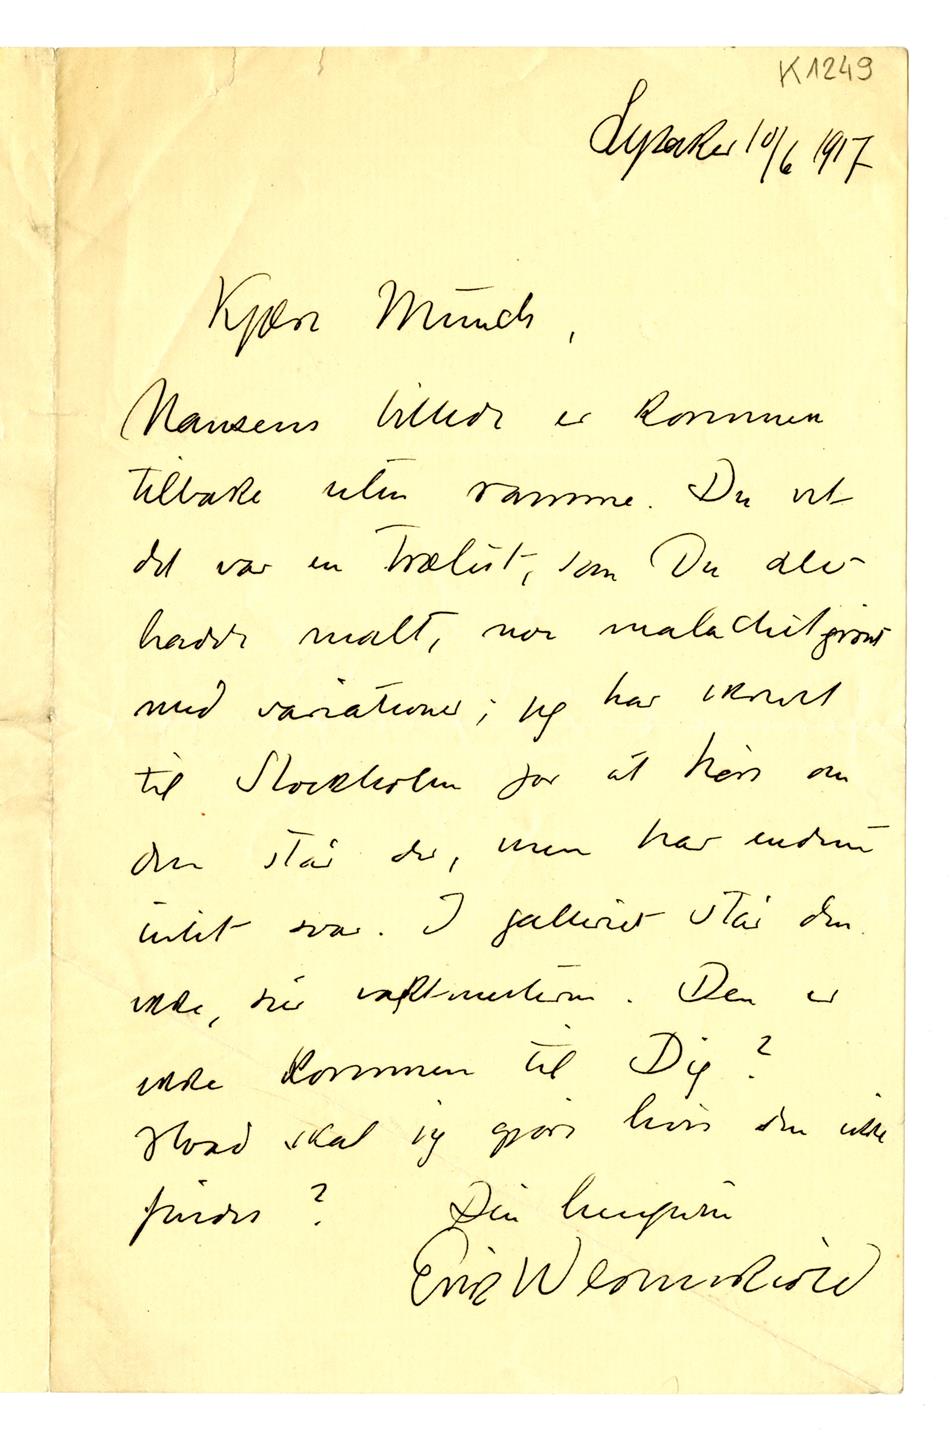 K1249
Lysaker 10/6 1917
Kjære Munch,
Nansens billede er kommen
tilbake uten ramme. Du vet
det var en trælist, som Du
hadde malt, malachitgrønt
med variationer; jeg har skrevet
til Stockholm for at høre om
den står der, men har endnu
intet svar. I galleriet står den
ikke, sier vaktmesteren. Den er
ikke kommen til Dig?
Hvad skal jeg gjøre hvis den ikke
findes? Din hengivne
Erik Werenskiold